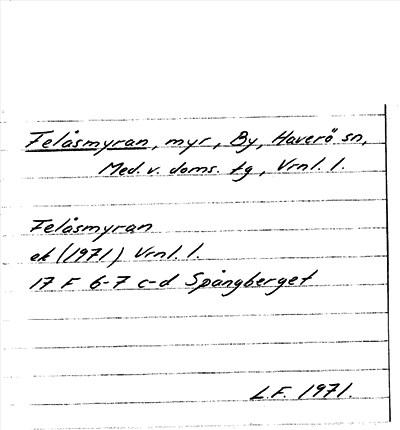 Felåsmyran, myr, By, Haverö sn,
Med. v. doms. tg, Vrml. l.
Felåsmyran
ek (1971) Vrml. l.
17 F 6-7 c-d Spångberget
L.F. 1971.